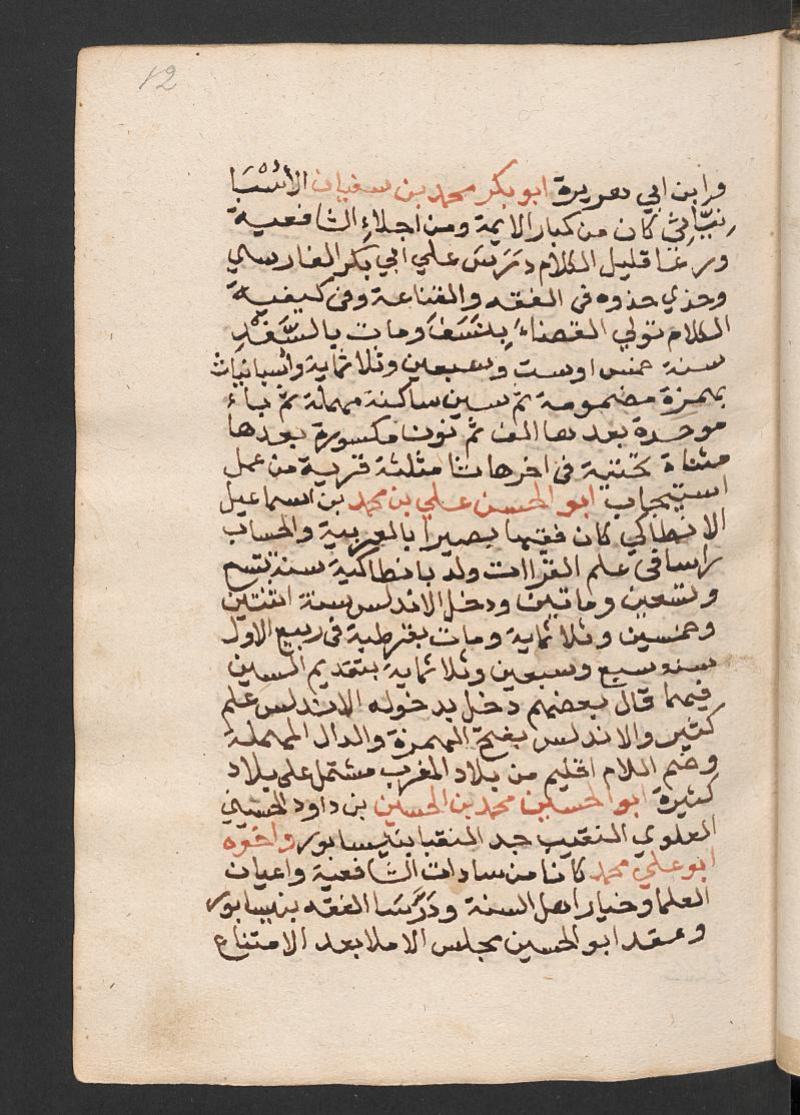 12
وابن ابي هريرة ابو بكر محمد بن سفيان الأُسْبَا
نِيَّاثي كان من كبار الايمة ومن اجلاء الشافعية
ورعا قليل الكلام دَرَسَ علي ابي بكر الفارسي
وحذي حذوه في الفقه والقناعة وفي كيفية
الكلام تولي القضاء بِنَسَفَ ومات بالسُّغْد
سنة خمس اوست وسبعين وثلاثماية واسبانياث
بهمزة مضمومة ثم سين ساكنة مهملة ثم باء
موحدة بعدها الف ثم نون مكسورة بعدها
مثناة تحتية في اخرها ثا مثلثة قرية من عمل
استيجاب ابو الحسن علي بن محمد بن اسماعيل
الانطاكي كان فقيها بصيرا بالعربية والحساب
راسا في علم القراات ولد بانطاكية سنة تسع
وتسعين وماتين ودخل الاندلس سنة اثنتين
وخمسين وثلاثماية ومات بقرطبة في ربيع الاول
سنة سبع وسبعين وثلاثماية بتقديم السين
فيهما قال بعضهم دخل بدخوله الاندلس علم
كثير والاندلس بفتح الهمزة والدال المهملة
وضم اللام اقليم من بلاد المغرب مشتمل علي بلاد
كثيرة ابو الحسين محمد بن الحسين بن داود الحسيني
العلوي النقيب جد النقبا بنيسابور واخوه
ابو علي محمد كانا من سادات الشافعية واعيان
العلما وخيار اهل السنة ودَرَسَا الفقه بنيسابور
وعقد ابو الحسين مجلس الاملا بعد الامتناع